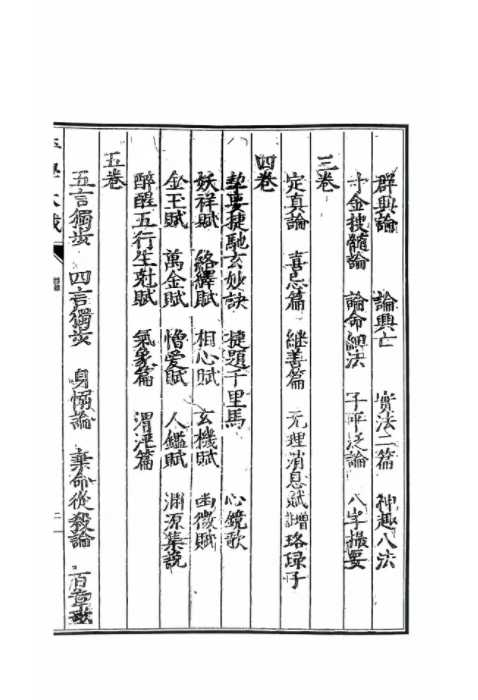 群興論 論興亡 寶法二篇 神趣八法
寸金搜髓論 論命細法 子平泛論 八字撮要
三卷
定真論 喜忌篇 継善篇 元理消息賦 增珞琭子
四卷
捷馳玄妙訣 捷題千里馬 心鏡歌
妖祥賦 絡繹賦 相心賦 玄機賦 幽微賦
金玉賦 萬金賦 憎爱賦 人鑑賦 淵源集說
醉醒五行生尅賦 氣象篇 渭涇篇
五卷
五言獨步 四言獨步 身弱論 棄命從殺論 百章歌